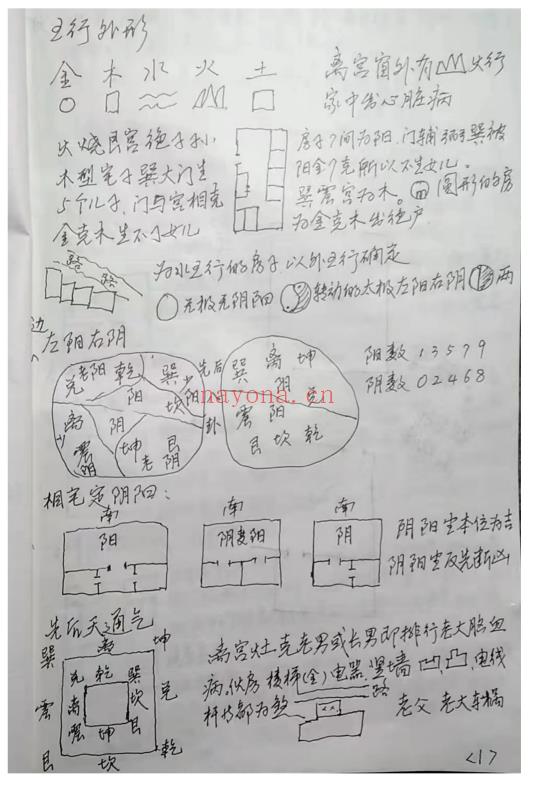 五行外形
金 木 水 火 土
离宫窗外有火行
家中出心脏病
火烧艮宫绝子孙
木型宅子巽大门生
5个儿子,门与宫相克
金克木生不了女儿
房子7间为阳,门辅弼巽被
阳金7克所以不生女儿。
巽震宫为木。圆形的房
为金克木出绝户
路
路
为水五行的房子以外五行确定
无极无阴阳 转动的太极左阳右阴 两
边
左阳右阴
兑 老阳 乾 巽
阳 少阳
坎
离 阴
震 坤 艮
老阴
先后
卦
巽 离 坤
阴 兑
震 阳
艮 坎 乾
阳数 1 3 5 7 9
阴数 0 2 4 6 8
nayona.cn
相宅定阴阳:
南 南 南
阳 阴变阳 阴
阴阳宅本位为吉
阴阳宅反先断凶
先后天通气
巽 离 坤
兑 乾 巽
震 离 坎 兑
震 坤 艮
艮 坎 乾
离宫灶克老男或长男即排行老大脑血
病,伙房楼梯(金)电器,竖墙凹,凸,电线
杆特部为煞
路
老父 老大车祸
<1>